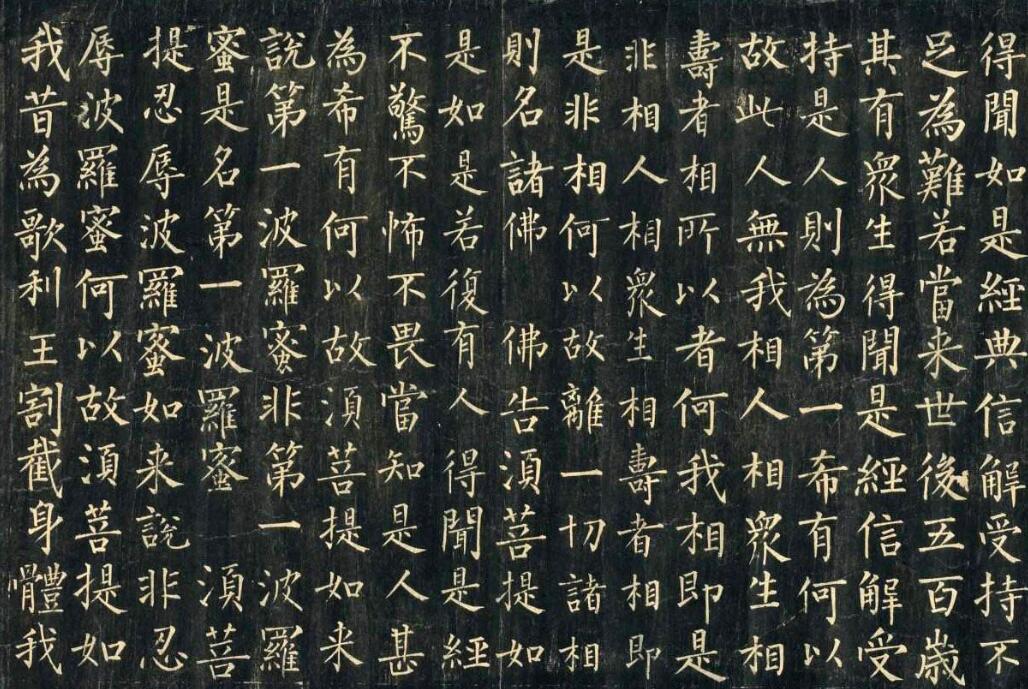 得聞如是經典信解受持不
足為難若當来世後五百歲
其有眾生得聞是經信解受
持是人則為第一希有何以
故此人無我相人相眾生相
壽者相所以者何我相即是
非相人相眾生相壽者相即
是非相何以故離一切諸相
則名諸佛 佛告須菩提如
是如是若復有人得聞是經
不驚不怖不畏當知是人甚
為希有何以故須菩提如来
說第一波羅蜜非第一波羅
蜜是名第一波羅蜜 須菩
提忍辱波羅蜜如来說非忍
辱波羅蜜何以故須菩提如
我昔為歌利王割截身體我